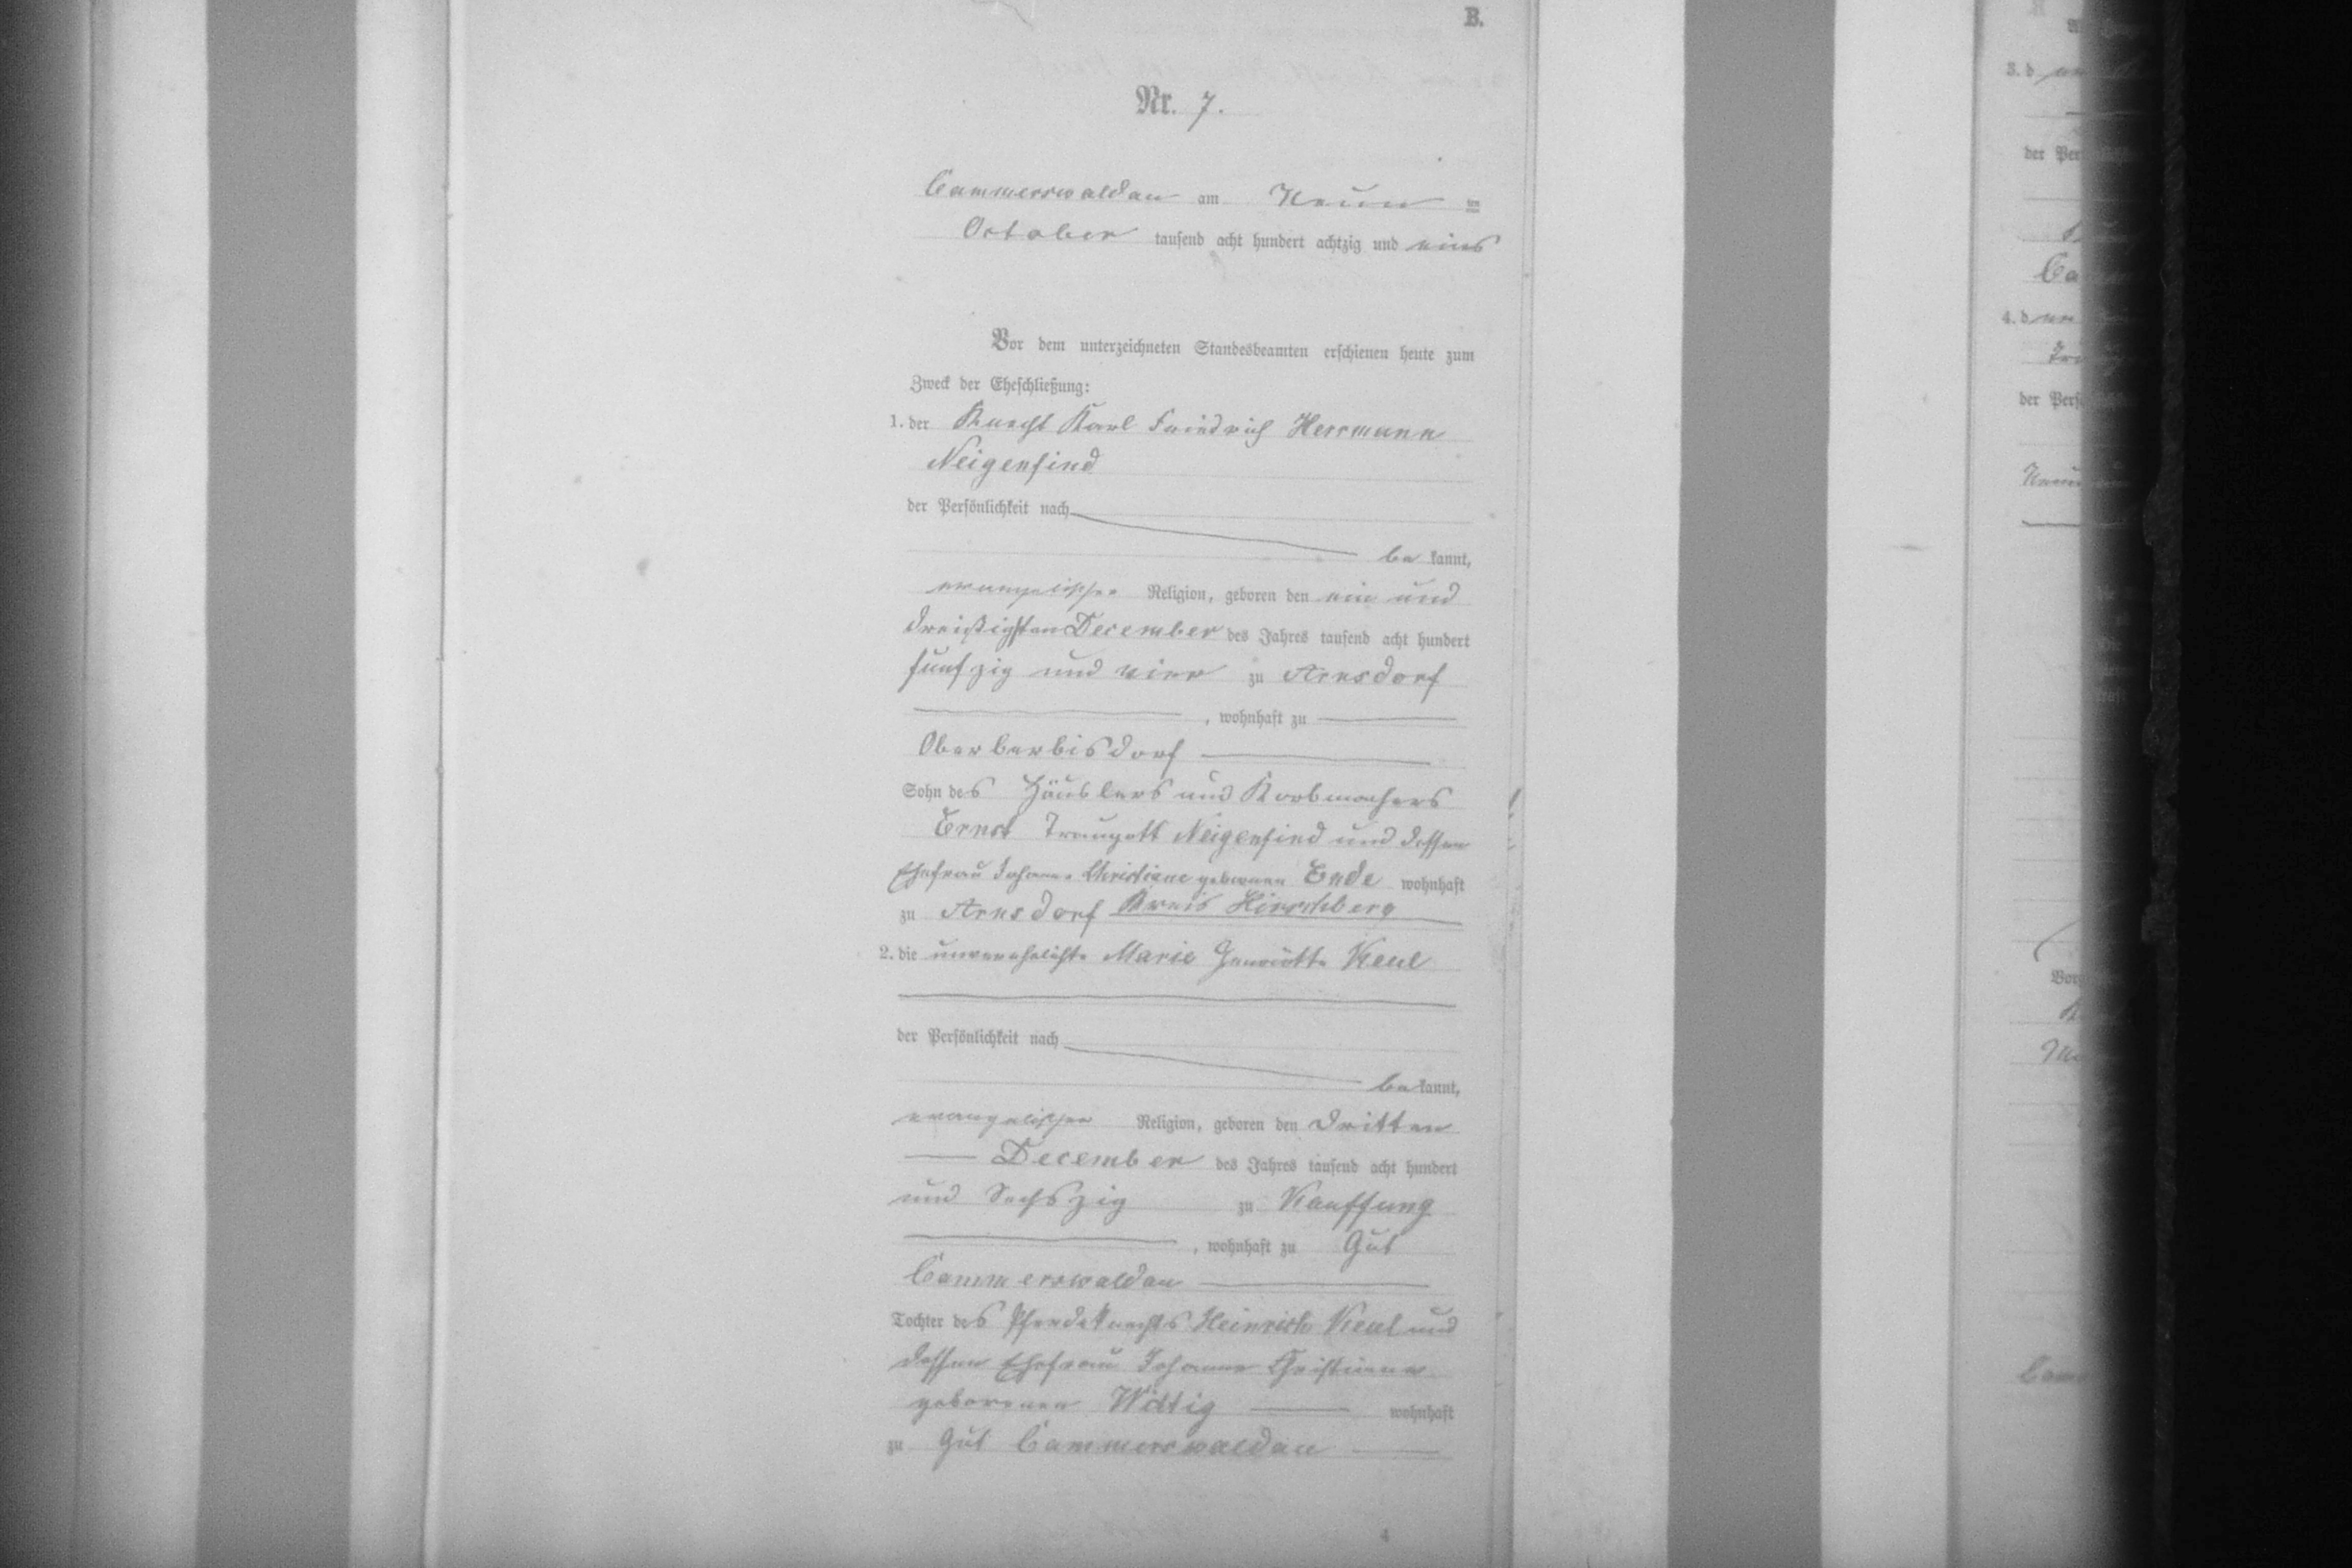 B.
Nr. 7.
Cammerswaldau am Neun ten
October tausend acht hundert achtzig und eins
Vor dem unterzeichneten Standesbeamten erschienen heute zum
Zweck der Eheschließung:
1. der Knecht Karl Friedrich Herrmann
Neigenfind
der Persönlichkeit nach
be kannt,
evangelischer Religion, geboren den ein und
dreißigsten December des Jahres tausend acht hundert
fünfzig und vier zu Arnsdorf
, wohnhaft zu
Oberberbisdorf
Sohn des Häuslers und Korbmachers
Ernst Traugott Neigenfind und dessen
Ehefrau Johanne Christiane geborenen Ende wohnhaft
zu Arnsdorf Kreis Hirschberg
2. die unverehelichte Marie Henriette Keul
der Persönlichkeit nach
be kannt,
evangelischer Religion, geboren den dritten
December des Jahres tausend acht hundert
und Sechszig zu Kauffung
, wohnhaft zu Gut
Cammerswaldau
Tochter des Pferdeknechts Heinrich Keul und
dessen Ehefrau Johanne Christiane
geborenen Wittig wohnhaft
zu Gut Cammerswaldau
4
3. d
der Per
Ca
4. d
der Pers
Vor